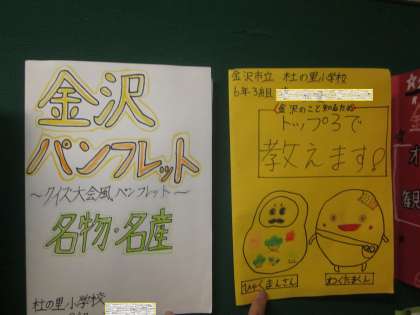 金沢
パンフレット
～クイズ大会風パンフレット～
名物・名産
杜の里小学校
金沢市立 杜の里小学校
6年3組
金沢のこと知るため
トップ3で
教えます♪
ひゃくまんさん
わくたまくん